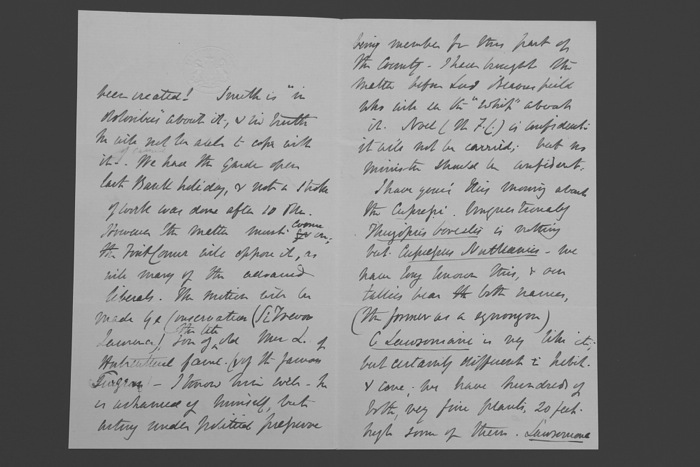 been created! Smith is "in
about it, & in truth
he will not be able to cope with
it. We had the Garden open
last Bank holiday, & not a stroke
of work was done after 10 A.M.
However the matter must come on;
the First Comr will oppose it, as
will many of the advanced
liberals. The motion will be
made by a Conservative (Sir Trevor
Lawrence), son of the late Mrs L. of
fame & of the famous
Surgeon — I know him well. He
is ashamed of himself, but
acting under political pressure
being member for this part of
the County. I have brought the
matter before Lord Beaconsfield
who will be the "whip" about
it. Noel (the F.C.) is confident
it will not be carried; but no
minister should be confident.
I have gone this morning about
the Cupressi. Unquestionably
Thuiopsis borealis is nothing
but Cupressus Nutkaensis. We
have long known this, & our
tallies bear the both names,
(the former as a synonym)
C Lawsoniana is very like it;
but certainly different in habit
& cone. We have hundreds of
both, very fine plants, 20 feet
high some of them. Lawsoniana